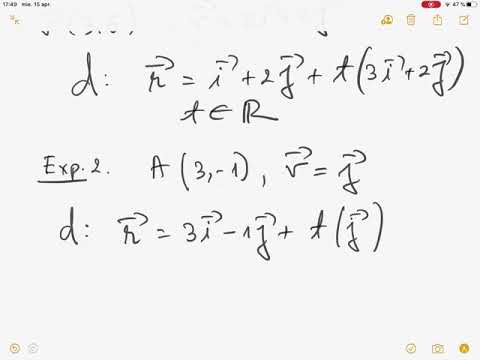 17:49 mie. 15 apr. 47 %
d: r⃗ = i⃗ + 2j⃗ + t(3i⃗ + 2j⃗)
t ∈ ℝ
Exp. 2. A(3,-1), v⃗ = j⃗
d: r⃗ = 3i⃗ - 1j⃗ + t(j⃗)